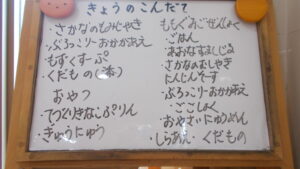 きょうのこんだて
・さかなのもみじやき
・ぶろっこりーおかかあえ
・もずくすーぷ
・くだもの
おやつ
・てづくりきなこぷりん
・ぎゅうにゅう
・ごはん
さかなのむしやき
にんじんそーす
・ぶろっこりーおかかあえ
・おやさいにゅうめん
・しらあん・くだもの